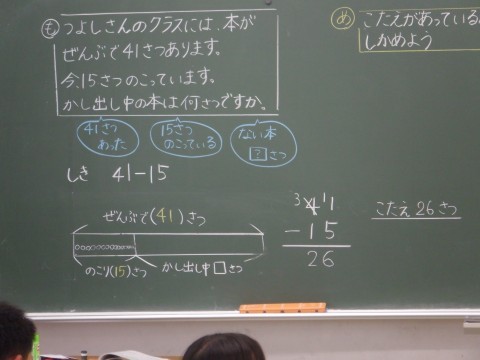 も つよしさんのクラスには、本が
ぜんぶで41さつあります。
今、15さつのこっています。
かし出し中の本は何さつですか。
め こたえがあっている
しかめよう
41さつ
あった
15さつ
のこっている
ない本
?さつ
しき 41-15
ぜんぶで(41)さつ
のこり(15)さつ
かし出し中□さつ
3 4 1 1
-15
26
こたえ 26さつ